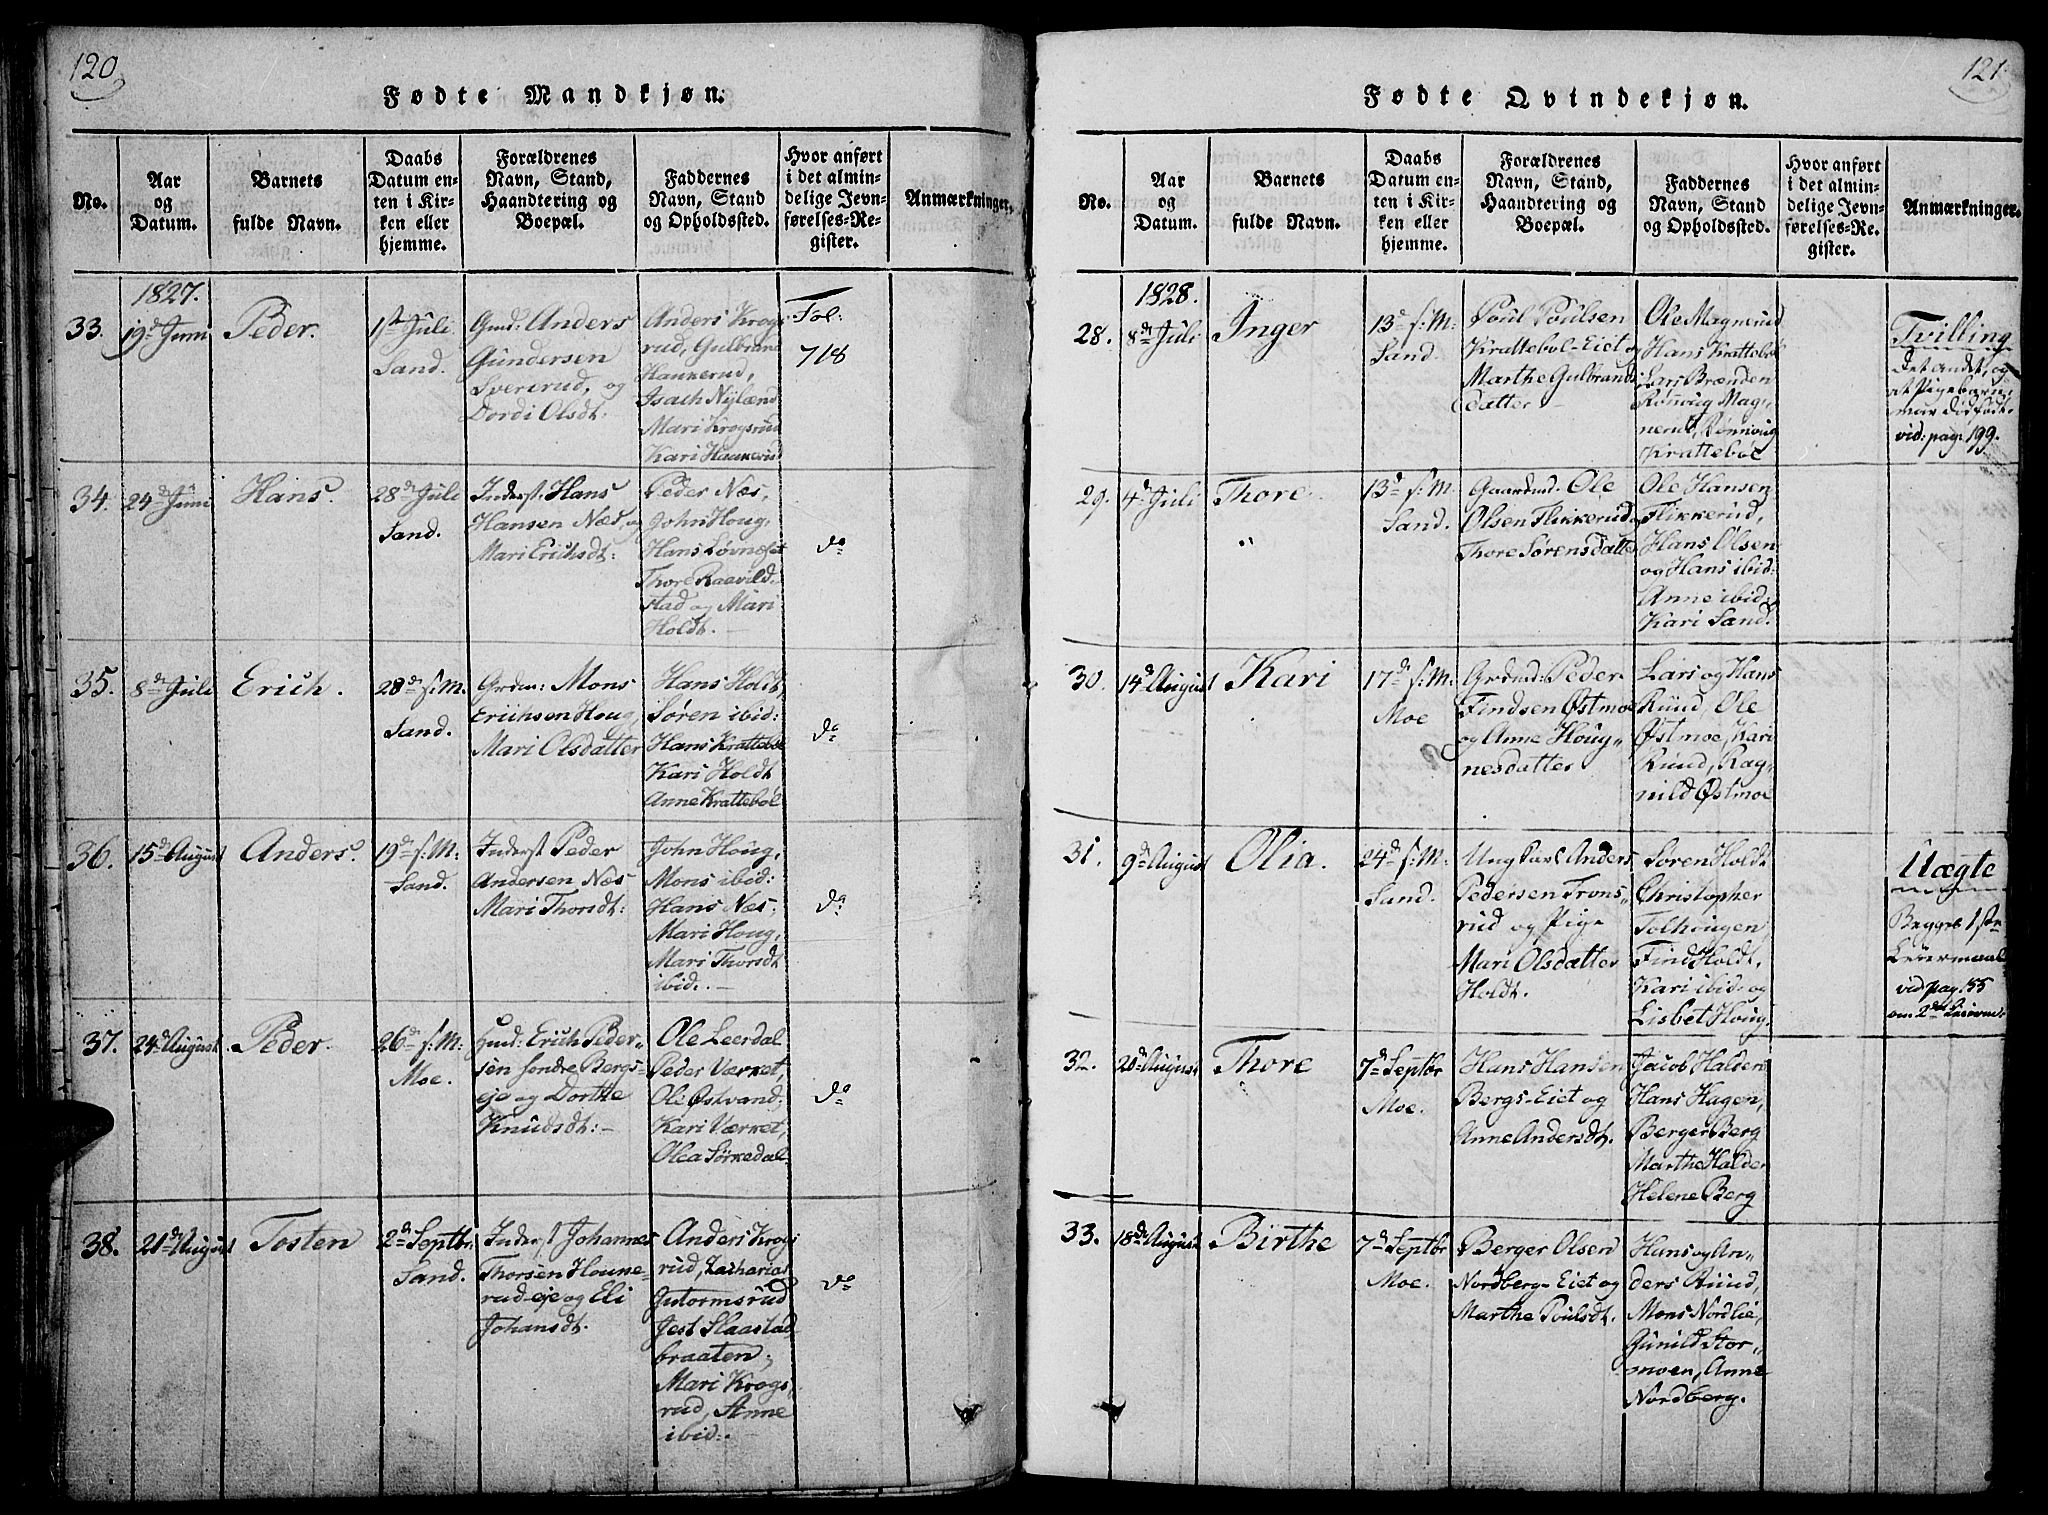 120
Fødte Mandkjøn.
No.
Aar
og
Datum.
Barnets
fulde Navn.
Daabs
Datum en-
ten i Kir-
ken eller
hjemme.
Forældrenes
Navn, Stand,
Haandtering og
Boepæl.
Faddernes
Navn, Stand
og Opholdssted.
Hvor anført
i det almin-
delige Jevn-
førelses-Re-
gister.
Anmærkninger.
1827.
33.
19d Juni
Peder.
1st Juli
Sand.
Gmd: Anders
Gundersen
Svererud, og
Dordi Olsdt:
Anders Krogs
rud, Gulbran
Haukerud,
Isach Nylænd
Mari Krogsrud
Kari Haukerud
Fol:
718
34.
24d Juni
Hans.
28d Juli
Sand.
Inderst: Hans
Hansen Næs, og
Mari Erichsdt:
Peder Næs,
John Houg,
Hans Løvnæset
Thore Raavild-
stad og Mari
Holdt. —
do
35.
8d Juli
Erich.
28d f: M.
Sand.
Grdm: Mons
Erichsen Houg,
Mari Olsdatter
Hans Holdt,
Søren ibid:
Hans Krattebøl
Kari Holdt
Anne Krattebøl
do
36.
15d August
Anders.
19d f: M:
Sand.
Inderst Peder
Andersen Næs
Mari Thorsdt:
John Houg,
Mons ibid:
Hans Næs,
Mari Houg,
Mari Thorsdt
ibid: —
do
37.
24d August
Peder.
26d f: M:
Moe.
Hmd: Erich Peder-
sen søndre Bergs-
eje og Dorthe
Knudsdt: —
Ole Leerdal
Peder Værket,
Ole Østvand,
Kari Værket,
Olea Sørkedal
do
38.
21d August
Tosten
2d Septbr
Sand.
Inderst Johannes
Thorsen Houne-
rud-eje og Eli
Johansdt.
Anders Krogs
rud, Zacharias
Gutormsrud
Jest Slaastad-
braaten,
Mari Krogs,
rud, Anne
ibid: —
do
121
Fødte Qvindekjøn.
No.
Aar
og
Datum.
Barnets
fulde Navn.
Daabs
Datum en-
ten i Kir-
ken eller
hjemme.
Forældrenes
Navn, Stand,
Haandtering og
Boepæl.
Faddernes
Navn, Stand
og Opholdssted.
Hvor anført
i det almin-
delige Jevn-
førelses-Re-
gister.
Anmærkninger.
1828.
28.
8d Juli
Inger
13d f: M:
Sand.
Poul Poulsen
Krattebøl-Eiet og
Marthe Gulbrands
datter —
Ole Magnerud
Hans Krattebøl
Lars Brænden
Rønnoug Mag,
nerud, Rønnoug
Krattebøl
Tvilling
det andet, og
et Pigebarn,
var dødfødt.
vid: pag: 199.
29.
4d Juli
Thore
13d f: M.
Sand.
Gaardmd. Ole
Olsen Flikkerud og
Thore Sørensdatter
Ole Hansen
Flikkerud,
Hans Olsen
og Hans ibid:
Anne ibid:
Kari Sand.
30.
14d August
Kari
17d f: M:
Moe
Grdmd: Peder
Findsen Østmoe
og Anne Houg„
nesdatter
Lars og Hans
Ruud, Ole
Østmoe, Kari
Ruud, Rag„
nild Østmoe
31.
9d August
Olia.
24d f: M:
Sand.
Ung Karl Anders
Pedersen Frons„
rud og Pige
Mari Olsdatter
Holdt.
Søren Holdt
Christopher
Tolhougen
Find Holdt,
Kari ibid: og
Lisbet Houg,
Uægte
Begges 1ste
Leiermaal
vid pag 155
32.
20d August
Thore
7d Septbr
Moe.
Hans Hansen
Bergs-Eiet og
Anne Andersdt.
Jacob Halden
Hans Hagen,
Berger Berg
Marthe Halden
Helene Berg
33.
18d August
Birthe
7d Septbr
Moe.
Berger Olsen
Nordberg-Eiet og
Marthe Poulsdt.
Hans og An„
ders Ruud,
Mons Nordlie,
Gunild Stor„
moen, Anne
Nordberg.